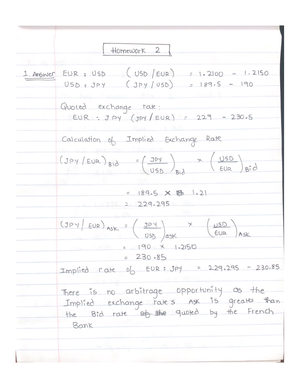 Homework 2
1. Answer EUR : USD (USD/EUR) = 1.2100 - 1.2150
USD : JPY (JPY/USD) = 189.5 - 190
Quoted exchange rate :
EUR : JPY (JPY/EUR) = 229 - 230.5
Calculation of Implied Exchange Rate
(JPY/EUR)Bid = (JPY/USD)Bid × (USD/EUR)Bid
= 189.5 × 1.21
= 229.295
(JPY/EUR)ASK = (JPY/USD)ASK × (USD/EUR)ASK
= 190 × 1.2150
= 230.85
Implied rate of EUR : JPY = 229.295 - 230.85
There is no arbitrage opportunity as the
Implied exchange rate's ASK is greater than
the Bid rate quoted by the French
Bank